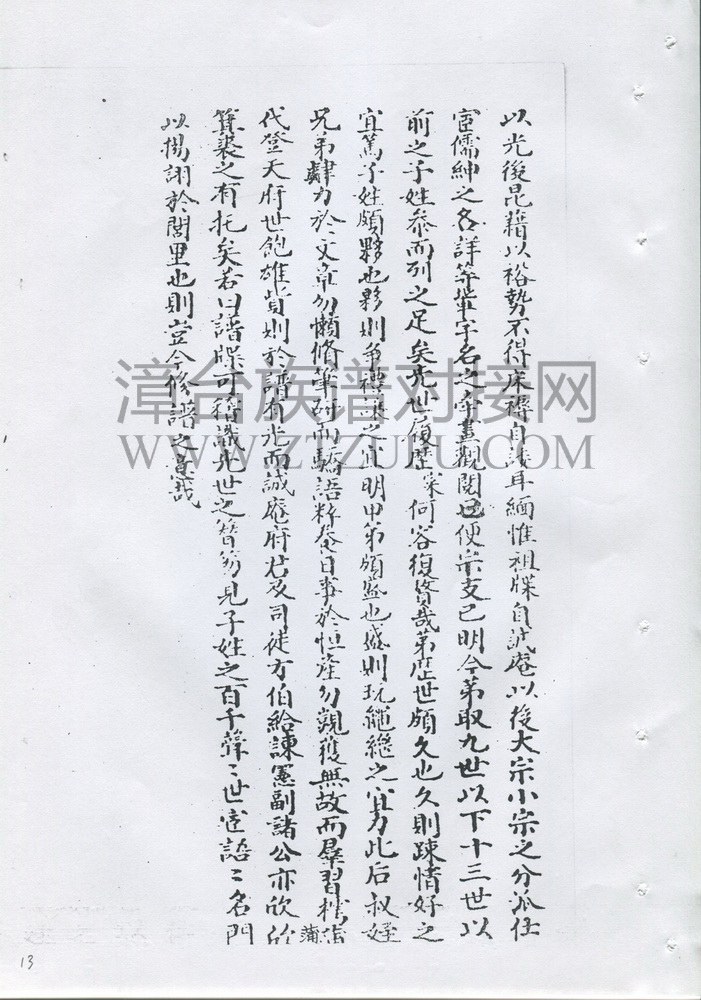 以光後昆藉以裕勢不得床禱自諉耳緬惟祖牒自誠庵以後大宗小宗之分派仕
宦儒紳之各詳等輩字名之字畫觀閱已便宗支已明今第取九世以下十三世以
前之子姓叅而列之足矣先世履歷業何容復贅哉第歷世頗久也久則疎情好之
宜篤子姓頗夥也夥則爭禮讓之宜明甲第頗盛也盛則玩繩繼之宜力此后叔姪
兄弟肆力於文章勿懶脩筆硏而驕語粹養日事於恒産勿覬獲無故而羣習樗蒲
代登天府世飽雄貲則於譜有光而誠庵府君及司徒方伯給諫憲副諸公亦欣欣
箕裘之有托矣若曰譜牒可稱識先世之簪笏見子姓之百千聲聲世宦語語名門
以揚詡於閭里也則豈今修譜之意哉
漳台族谱对接网
WWW.ZTZUPU.COM
13